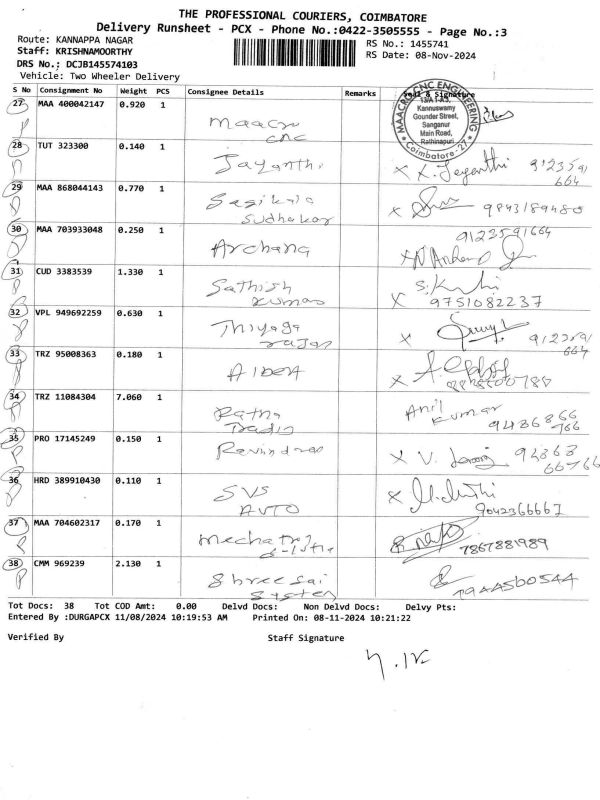 THE PROFESSIONAL COURIERS, COIMBATORE
Delivery Runsheet - PCX - Phone No.:0422-3505555 - Page No.:3
Route: KANNAPPA NAGAR
RS No.: 1455741
Staff: KRISHNAMOORTHY
RS Date: 08-Nov-2024
DRS No.: DCJB145574103
Vehicle: Two Wheeler Delivery
S No Consignment No Weight PCS Consignee Details Remarks Seal & Signature
27 MAA 400042147 0.920 1 Maacro CNC
MAACRO CNC ENGINEERING
13/A1-A3,
Kannuswamy
Gounder Street,
Sanganur
Main Road,
Rathinapuri
Coimbatore-27
28 TUT 323300 0.140 1 Jayanthi X K. Jayanthi 9123591664
29 MAA 868044143 0.770 1 Sasikala Sudhakar X 9843189480
30 MAA 703933048 0.250 1 Archana 9123591664
31 CUD 3383539 1.330 1 Sathish Kumar X 9751082237
32 VPL 949692259 0.630 1 Thiyaga rajan X 9123591664
33 TRZ 95008363 0.180 1 Albert X
34 TRZ 11084304 7.060 1 Ratna Anil Kumar 9486866766
35 PRO 17145249 0.150 1 Ravindran X V.
36 HRD 389910430 0.110 1 SVS AUTO X 9042366667
37 MAA 704602317 0.170 1 7867881989
38 CMM 969239 2.130 1 Shree Sai System
Tot Docs: 38 Tot COD Amt: 0.00 Delvd Docs: Non Delvd Docs: Delvy Pts:
Entered By :DURGAPCX 11/08/2024 10:19:53 AM Printed On: 08-11-2024 10:21:22
Verified By Staff Signature